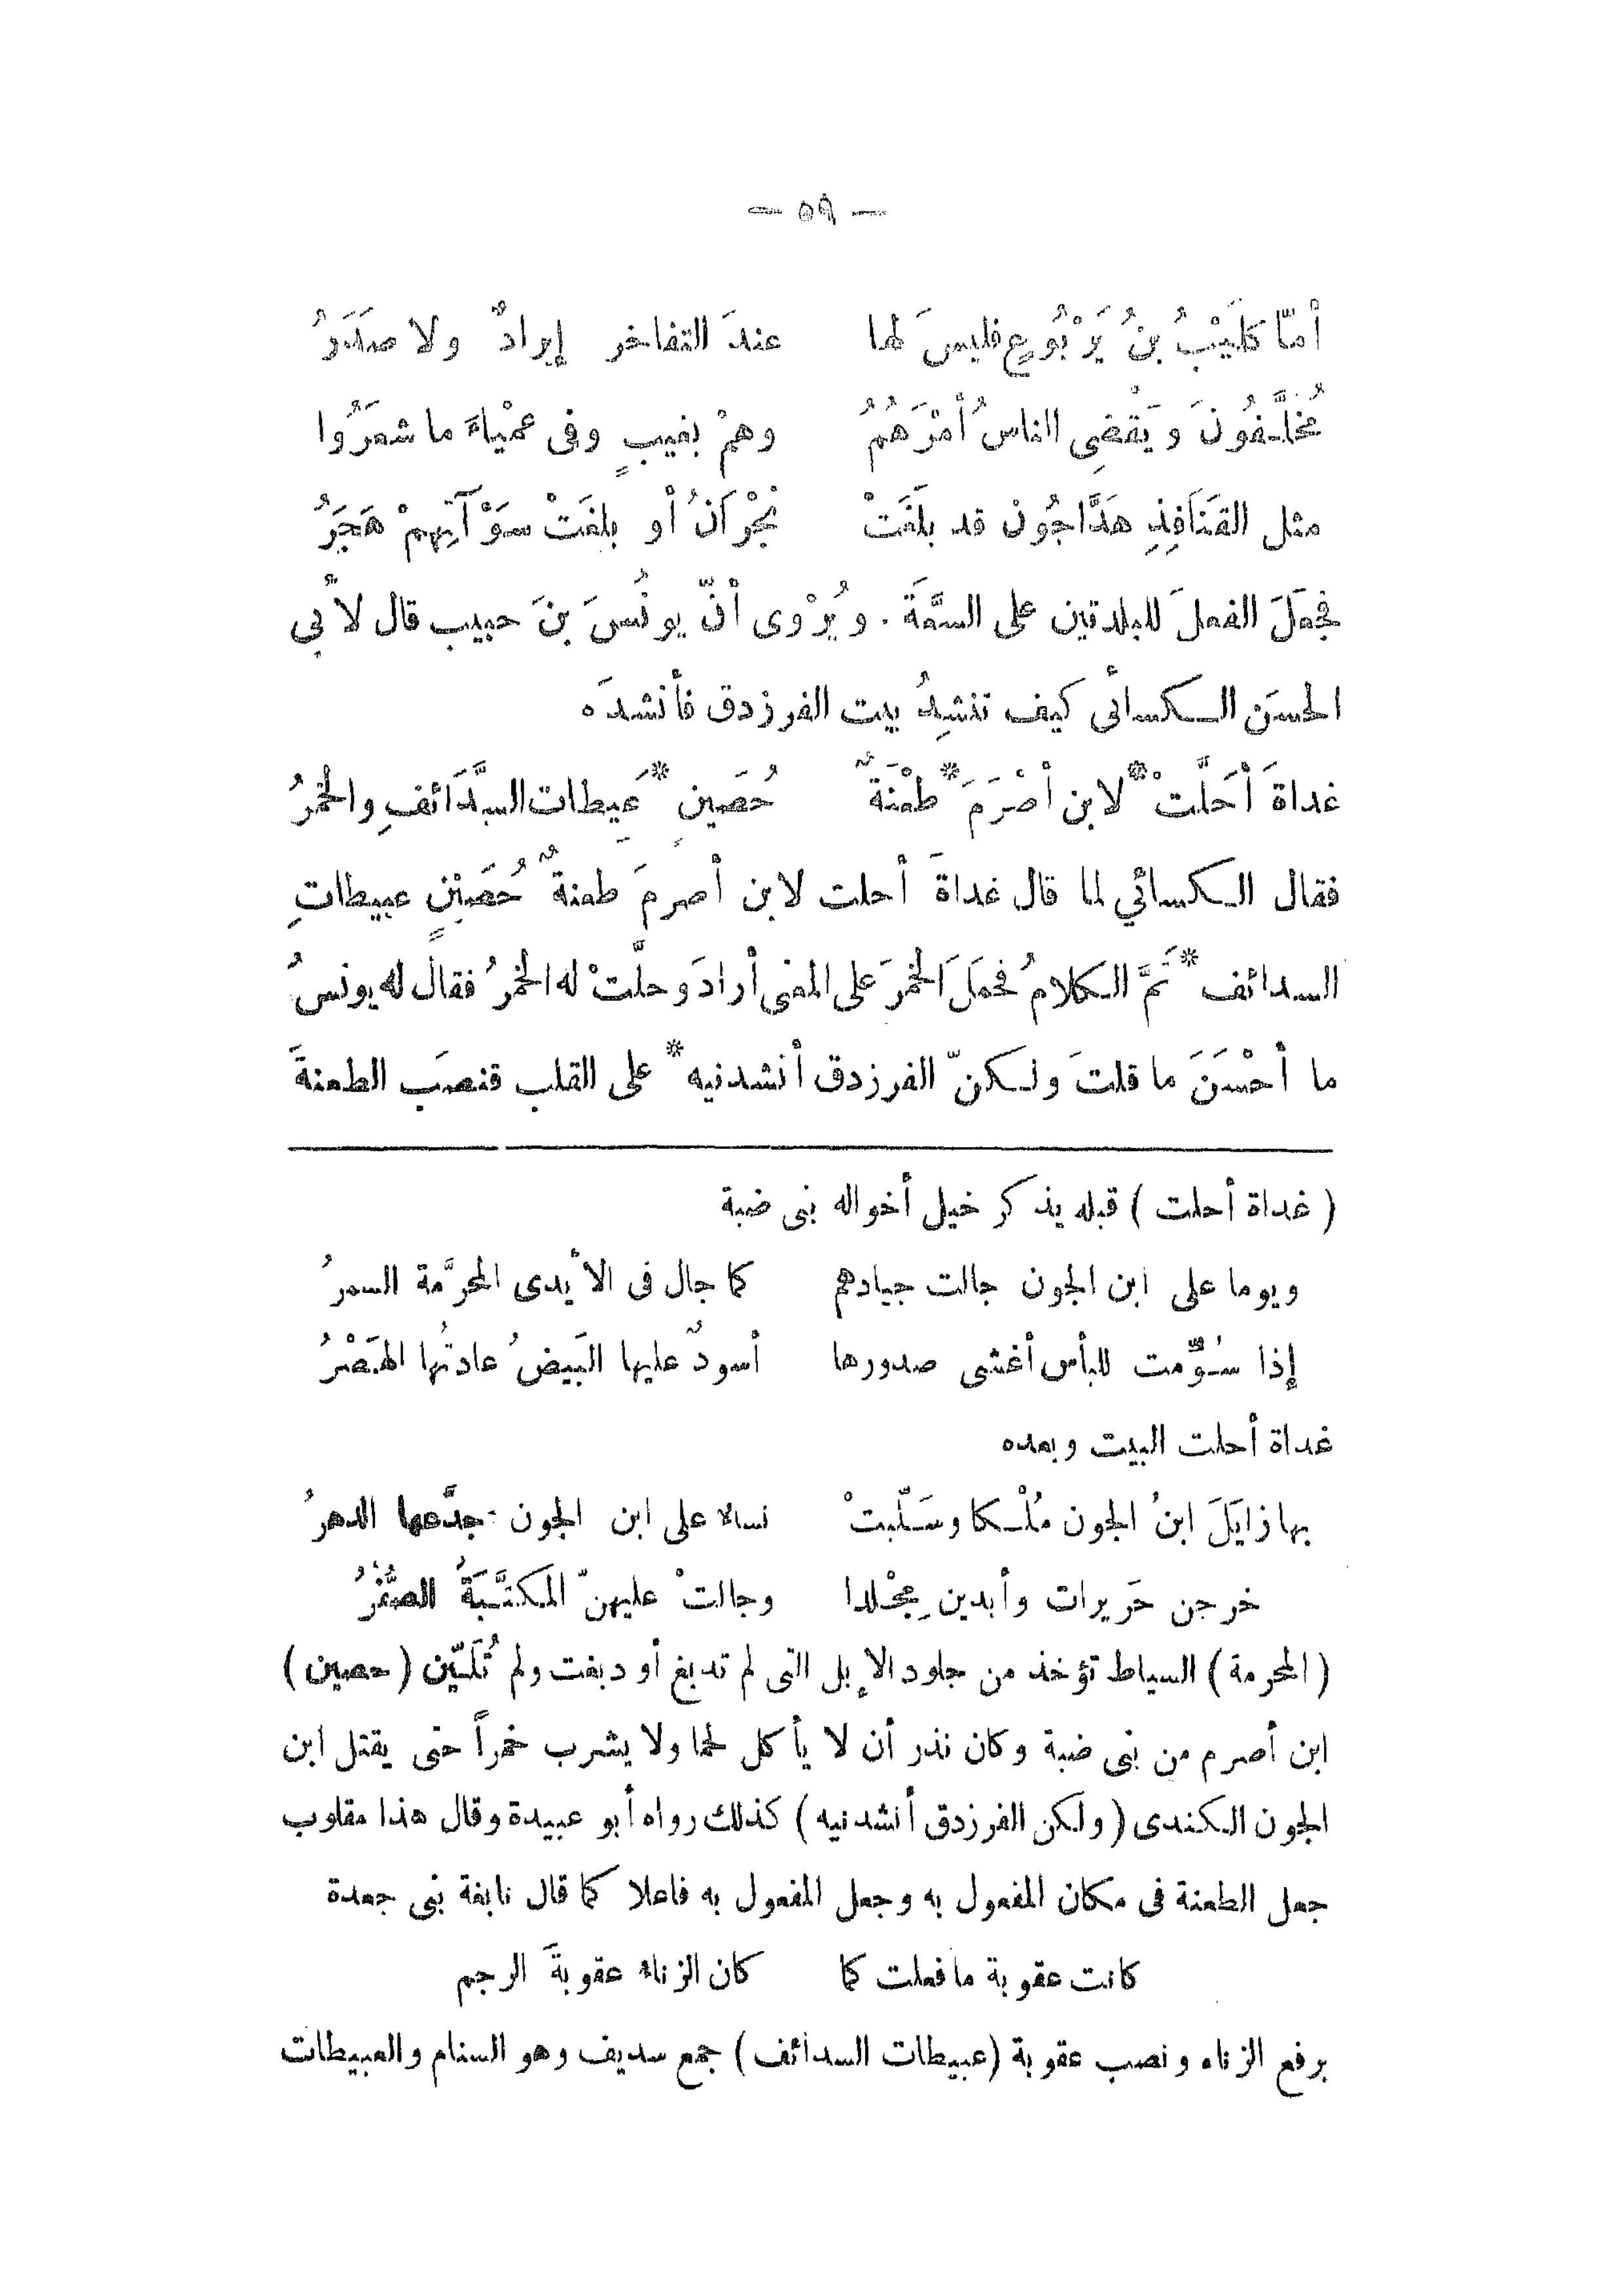 — ٥٩ —
أمّا كلَيْبُ بنُ يَرْبُوعٍ فليسَ لها عندَ التفاخر إيرادٌ ولا صدَرُ
مُخَلَّفُونَ وَيَقْضِى الناسُ أَمْرَهُمُ وهمْ بغيبٍ وفى عمْياءَ ما شعَرُوا
مثل القَنَافِذِ هَدَّاجُونَ قد بلَغَتْ نَجْرَانُ أو بلغَتْ سَوْآتِهِمْ هَجَرُ
فجعَلَ الفعلَ للبلدتين على السعَّةَ . ويُرْوى أنّ يونُسَ بنَ حبيب قال لأبى
الحسَن الكسائى كيف تنشِدُ بيت الفرزدق فأنشدَه
غداةَ أَحَلَّتْ * لابن أَصْرَمَ * طَعْنَةٌ حُصَينٍ * عَبِيطات السَّدَائفِ والخمْرُ
فقال الكسائي لما قال غداةَ أحلت لابن أصرمَ طعنةٌ حُصَيْنٍ عبيطاتِ
السدائف * تَمَّ الكلامُ فحمَلَ الخمْرَ على المعنى أرادَ وحلَّتْ له الخمْرُ فقال له يونسُ
ما أحْسَنَ ما قلتَ ولكنّ الفرزدق أنشدنيه * على القلب فنصَب الطعنةَ
( غداة أحلت ) قبله يذكر خيل أخواله بنى ضبة
ويوما على ابن الجون جالت جيادهم كما جال فى الأيدى المحرَّمة السمرُ
إذا سُوِّمت للبأس أغشى صدورها أسودٌ عليها البَيضُ عادتُها الهَصْرُ
غداة أحلت البيت وبعده
بها زايَلَ ابنُ الجون مُلْكا وسَلَّبتْ نساء على ابن الجون جدَّعها الدهرُ
خرجن حَريرات وأبدين مِجْلدا وجالتْ عليهنّ المَكتَّبَةُ الصُّفْرُ
( المحرمة ) السياط تؤخذ من جلود الإبل التى لم تدبغ أو دبغت ولم تُلَيّن ( حصين )
ابن أصرم من بنى ضبة وكان نذر أن لا يأكل لحما ولا يشرب خمراً حتى يقتل ابن
الجون الكندى ( ولكن الفرزدق أنشدنيه ) كذلك رواه أبو عبيدة وقال هذا مقلوب
جعل الطعنة فى مكان المفعول به وجعل المفعول به فاعلا كما قال نابغة بنى جعدة
كانت عقوبة ما فعلت كما كان الزناء عقوبةَ الرجم
برفع الزناء ونصب عقوبة (عبيطات السدائف ) جمع سديف وهو السنام والعبيطات